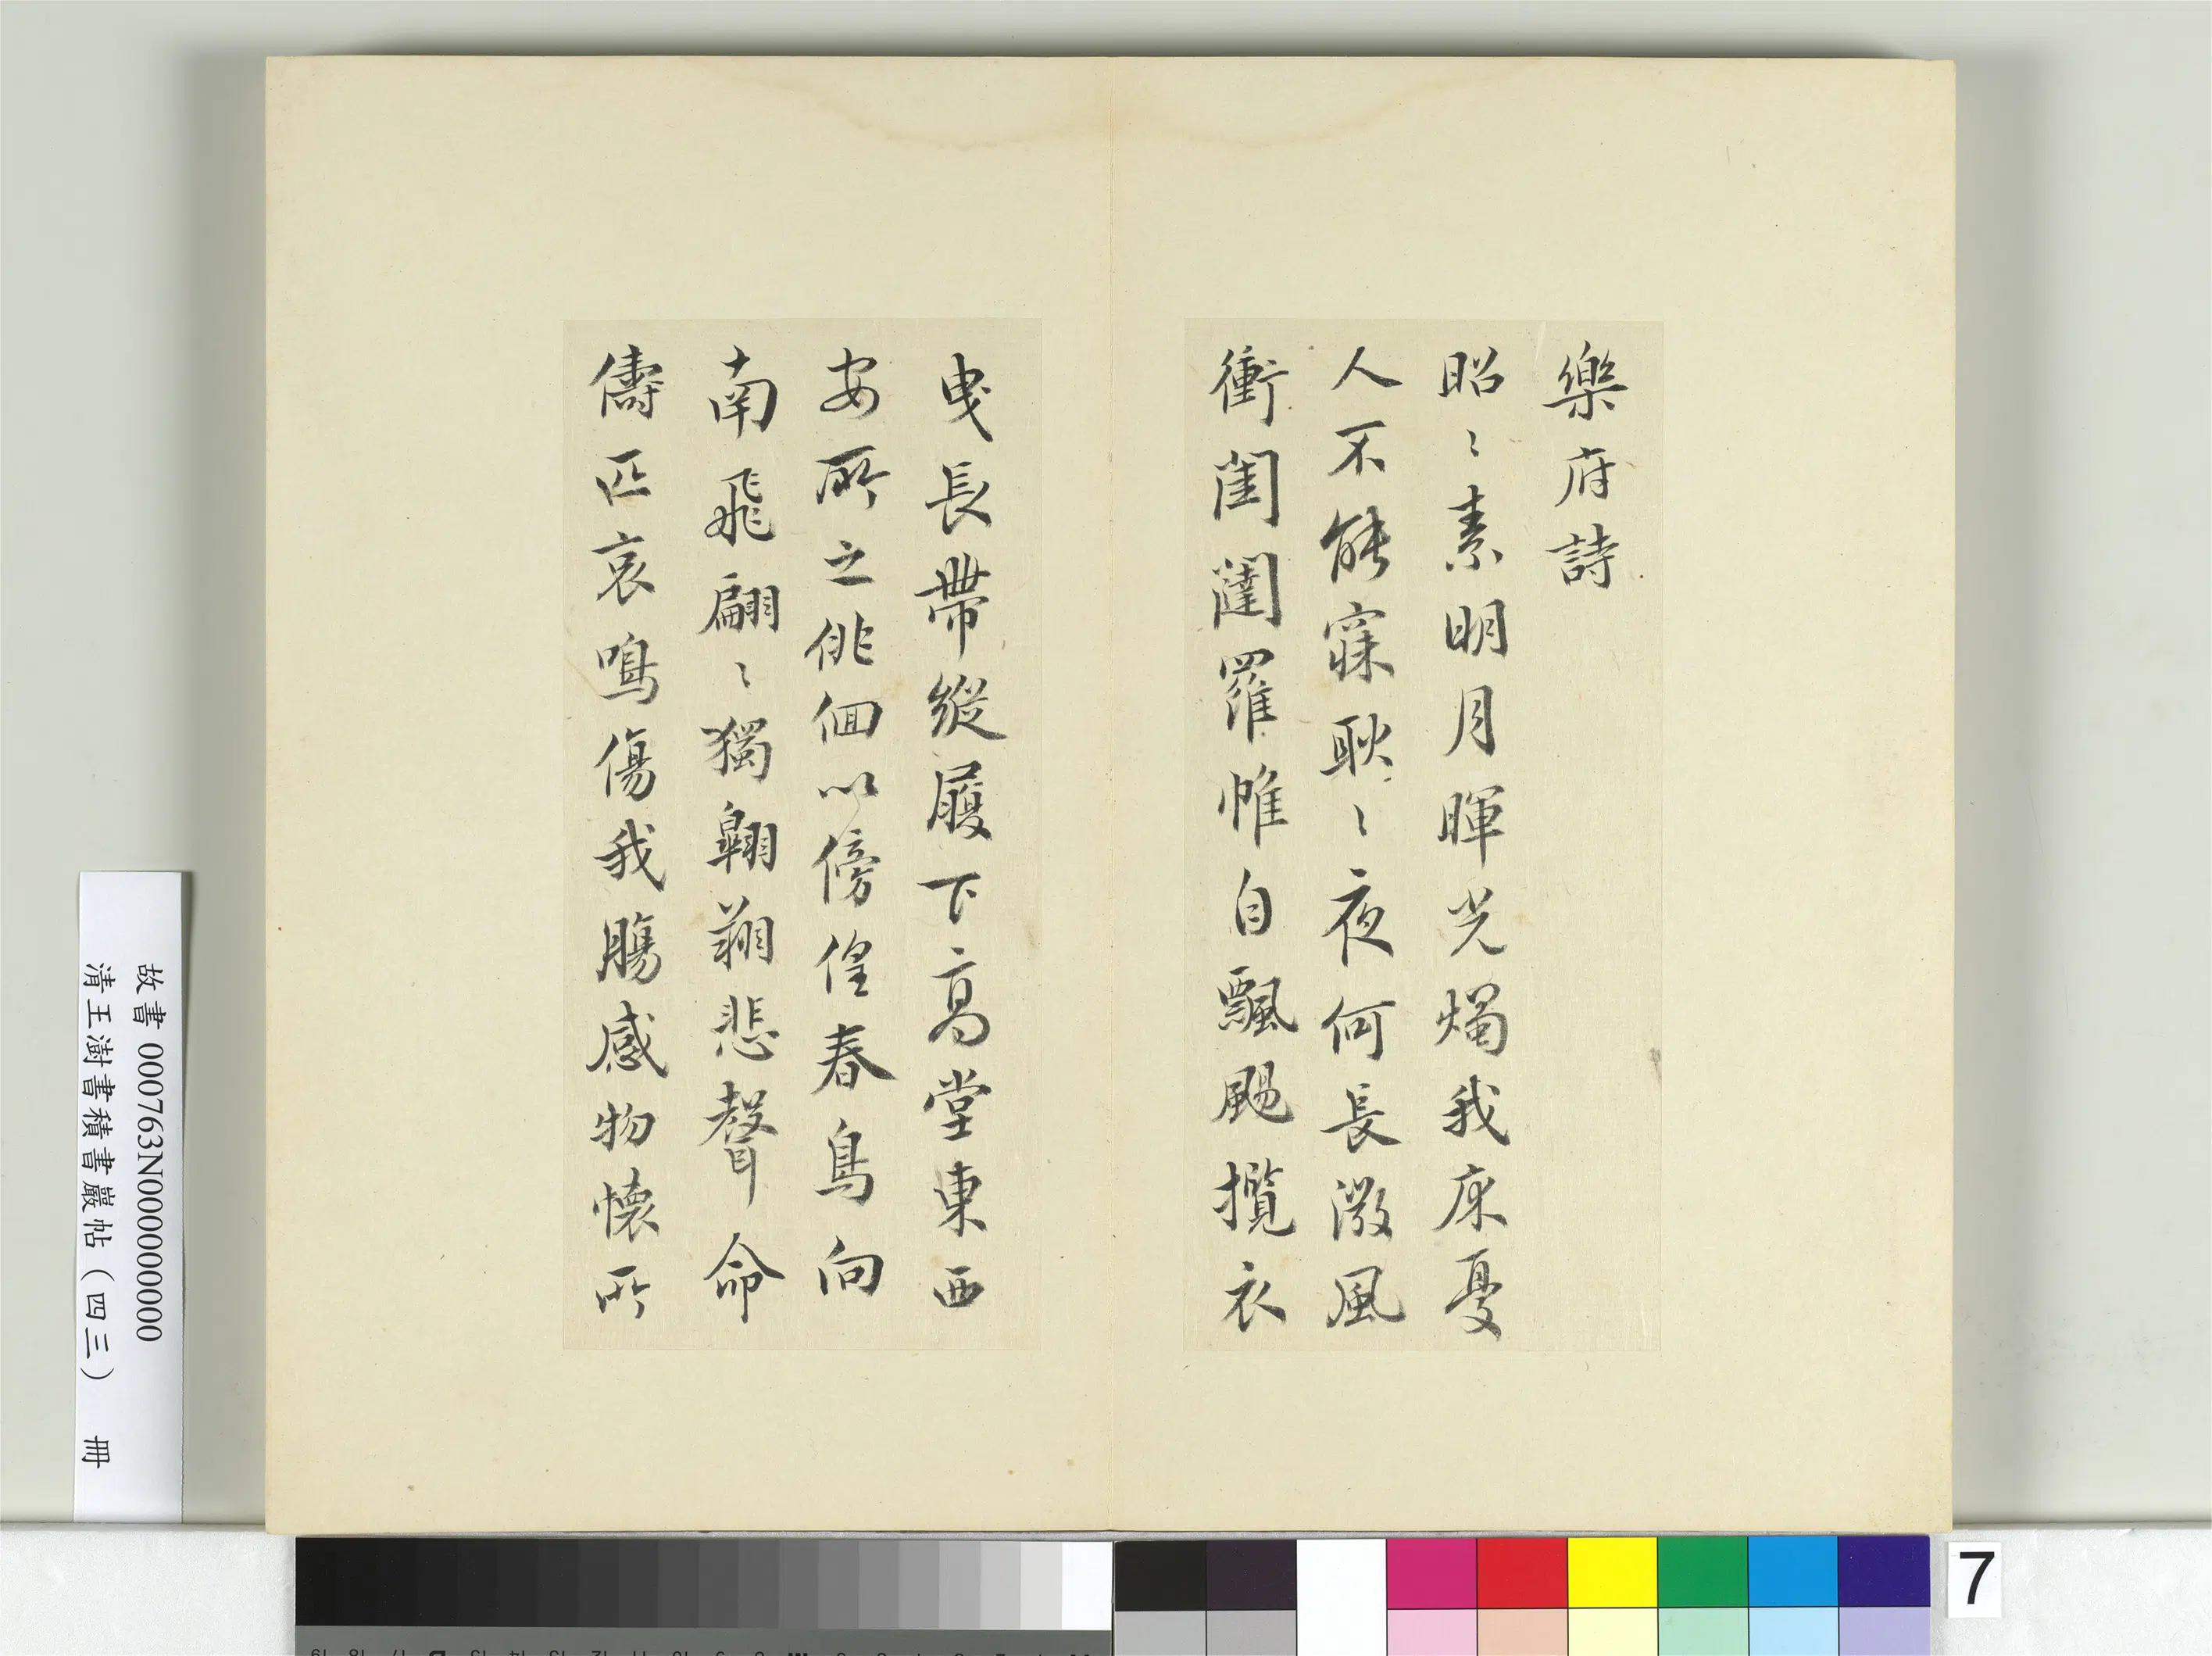 樂府詩
昭〻素明月暉光燭我床憂
人不能寐耿〻夜何長微風
衝閨闥羅帷自飄颺攬衣
曳長帶縱履下高堂東西
安所之徘徊以傍偟春鳥向
南飛翩〻獨翱翔悲聲命
儔匹哀鳴傷我腸感物懷所
故書 000763N000000000
清王澍書積書巖帖(四三) 冊
7